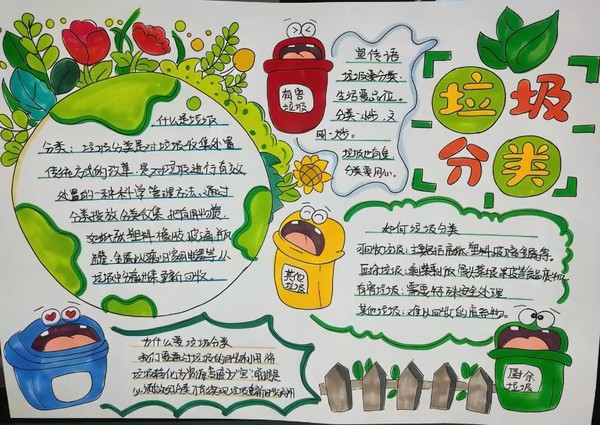 垃圾
分类
宣传语
垃圾要分类,
生活要品位。
分类一小步,文
明一大步。
垃圾也有家
分类要用心。
有害
垃圾
什么是垃圾
分类:垃圾分类是对垃圾收集处置
传统方式的改革,是对垃圾进行有效
处置的一种科学管理方法,通过
分类投放分类收集,把有用物资,
如纸张塑料橡胶玻璃瓶
罐
从
垃圾中分离出来重新回收。
其他
垃圾
如何垃圾分类
可回收垃圾:主要包括废纸,塑料,玻璃金属等。
厨余垃圾:剩菜剩饭,骨头菜根菜叶果皮等
有害垃圾:需要特殊安全处理
其他垃圾:难以回收的废弃物。
为什么要垃圾分类
我们要通过垃圾的回收利用,将
垃圾转化为资源
垃圾
厨余
垃圾